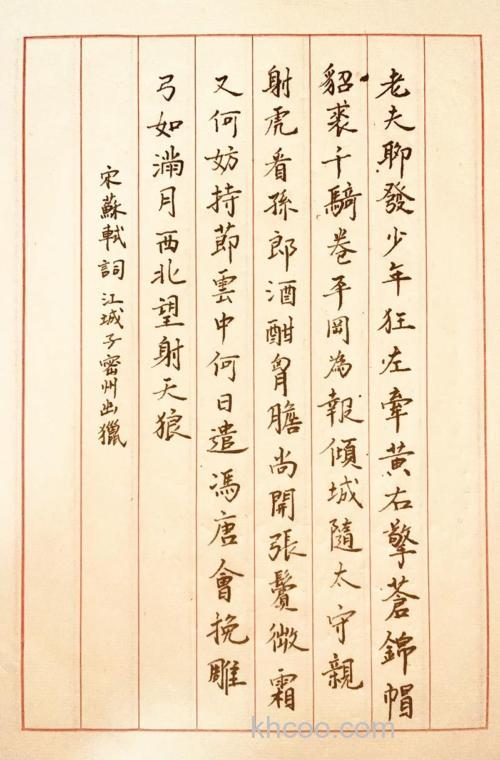 老夫聊發少年狂左牽黃右擎蒼錦帽
貂裘千騎卷平岡為報傾城隨太守親
射虎看孫郎酒酣胷膽尚開張鬢微霜
又何妨持節雲中何日遣馮唐會挽雕
弓如滿月西北望射天狼
宋蘇軾詞江城子密州出獵
khcoo.com